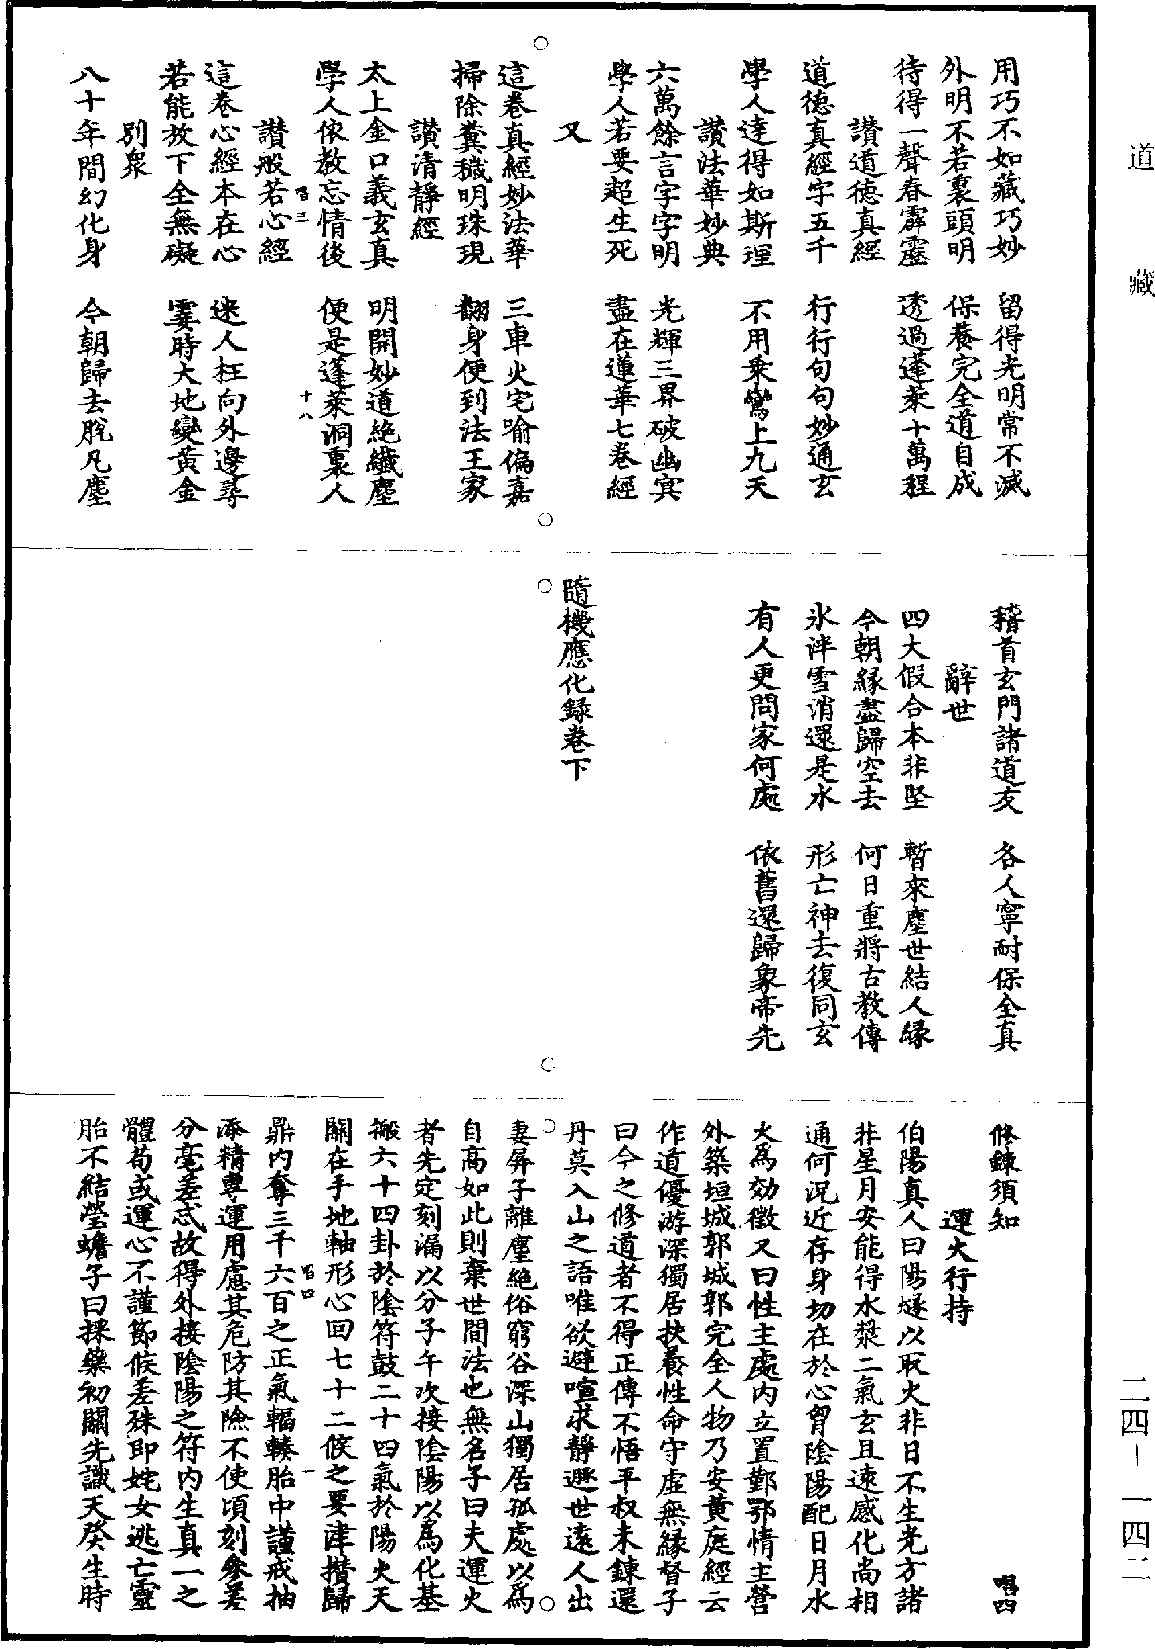 道藏
用巧不如藏巧妙　留得光明常不滅
外明不若裏頭明　保養完全道自成
待得一聲春霹靂　透過蓬萊十萬程
讚道德真經
道德真經字五千　行行句句妙通玄
學人達得如斯理　不用乘鸞上九天
讚法華妙典
六萬餘言字字明　光輝三界破幽冥
學人若要超生死　盡在蓮華七卷經
又
這卷真經妙法華　三車火宅喻偏嘉
掃除糞穢明珠現　翻身便到法王家
讚清靜經
太上金口義玄真　明開妙道絕纖塵
學人依教忘情後　便是蓬萊洞裏人
唱三　十八
讚般若心經
這卷心經本在心　迷人枉向外邊尋
若能放下全無礙　霎時大地變黃金
別衆
八十年間幻化身　今朝歸去脫凡塵
稽首玄門諸道友　各人寧耐保全真
辭世
四大假合本非堅　暫來塵世結人緣
今朝緣盡歸空去　何日重將古教傳
氷泮雪消還是水　形亡神去復同玄
有人更問家何處　依舊還歸象帝先
隨機應化録卷下
修鍊須知　唱四
運火行持
伯陽真人曰陽燧以取火非日不生光方諸
非星月安能得水漿二氣玄且遠感化尚相
通何況近存身切在於心胷陰陽配日月水
火爲効徵又曰性主處内立置鄞鄂情主營
外築垣城郭城郭完全人物乃安黃庭經云
作道優游深獨居扶養性命守虛無緣督子
曰今之修道者不得正傳不悟平叔未鍊還
丹莫入山之語唯欲避喧求靜遯世遠人出
妻屏子離塵絶俗窮谷深山獨居孤處以爲
自高如此則棄世間法也無名子曰夫運火
者先定刻漏以分子午次接陰陽以爲化基
搬六十四卦於陰符鼓二十四氣於陽火天
關在手地軸形心回七十二候之要津攢歸
唱四　一
鼎内奪三千六百之正氣輻輳胎中謹戒抽
添精專運用慮其危防其險不使頃刻參差
分毫差忒故得外接陰陽之符内生真一之
體苟或運心不謹節候差殊即姹女逃亡靈
胎不結瑩蟾子曰採藥初關先識天癸生時
二四－一四二